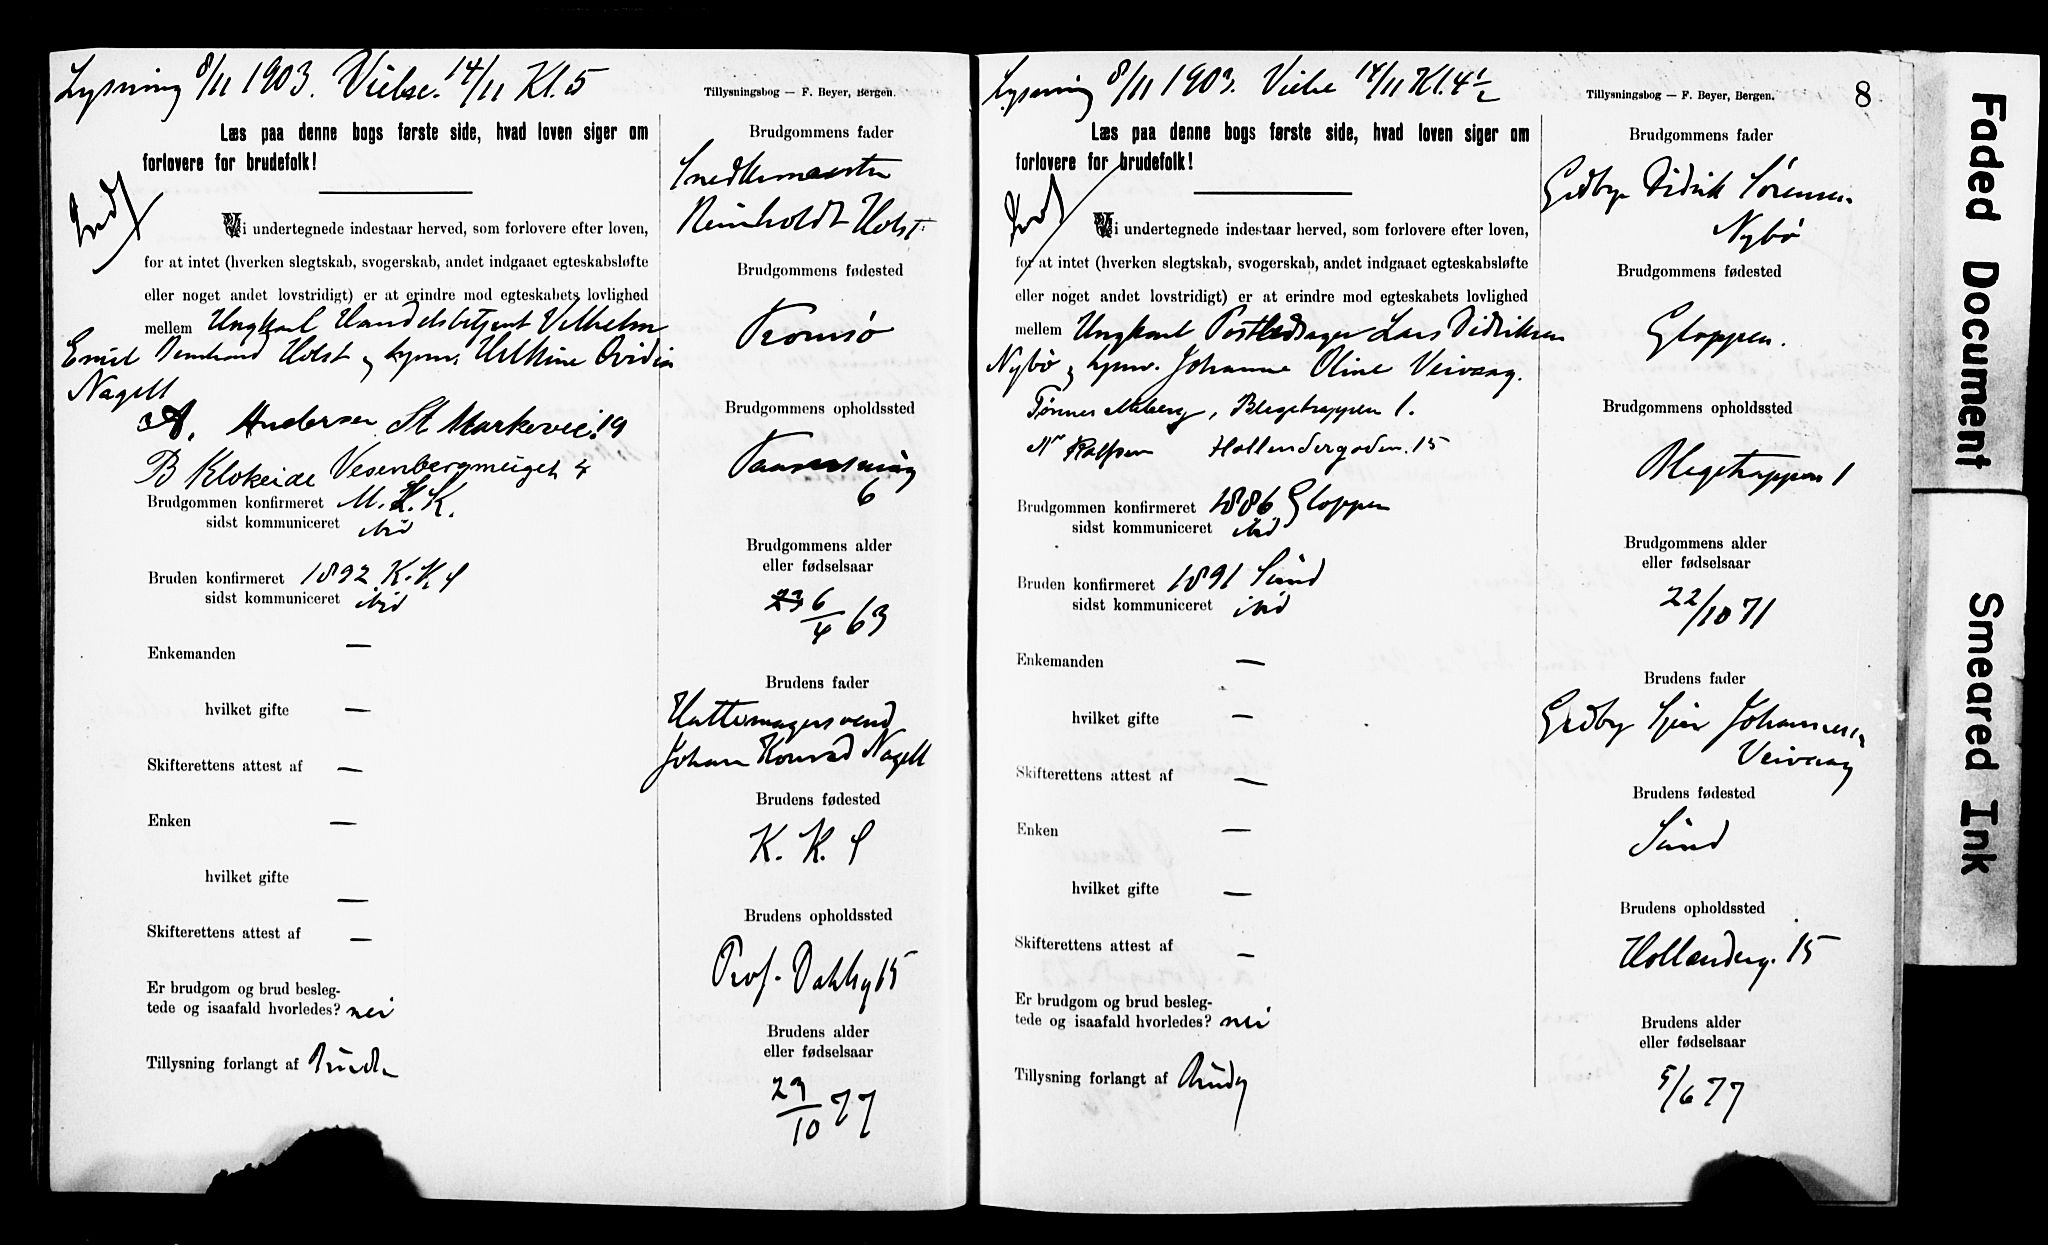 Lysning 8/11 1903. Vielse. 14/11 Kl. 5
Tillysningsbog — F. Beyer, Bergen.
Læs paa denne bogs første side, hvad loven siger om
forlovere for brudefolk!
Indf
Vi undertegnede indestaar herved, som forlovere efter loven,
for at intet (hverken slegtskab, svogerskab, andet indgaaet egteskabsløfte
eller noget andet lovstridigt) er at erindre mod egteskabets lovlighed
mellem Ungkarl Handelsbetjent Vilhelm
Emil Holst og Nagell
A. Andersen St Markevei. 19
B Klokeide 4
Brudgommen konfirmeret M. K. K.
sidst kommuniceret ibid
Bruden konfirmeret 1892 K. K. S
sidst kommuniceret ibid
Enkemanden —
hvilket gifte —
Skifterettens attest af —
Enken —
hvilket gifte —
Skifterettens attest af —
Er brudgom og brud besleg-
tede og isaafald hvorledes? nei
Tillysning forlangt af
Brudgommens fader
Snedkermester
Reinholdt Holst
Brudgommens fødested
Tromsø
Brudgommens opholdssted
6
Brudgommens alder
eller fødselsaar
6/4 63
Brudens fader
Hattemagersvend
Johan Konrad Nagell
Brudens fødested
K. K. S
Brudens opholdssted
Prof. Dahlsg 15
Brudens alder
eller fødselsaar
29/10 77
Lysning 8/11 1903. Vielse 14/11 Kl. 4 1/2
Tillysningsbog — F. Beyer, Bergen.
8
Læs paa denne bogs første side, hvad loven siger om
forlovere for brudefolk!
Indf
Vi undertegnede indestaar herved, som forlovere efter loven,
for at intet (hverken slegtskab, svogerskab, andet indgaaet egteskabsløfte
eller noget andet lovstridigt) er at erindre mod egteskabets lovlighed
mellem Ungkarl Lars Didriksen
Nybø og Johanne Oline Veivaag.
Tønnes Moberg, Blegetrappen 1.
Rolfsen Hollendergaden. 15
Brudgommen konfirmeret 1886 Gloppen
sidst kommuniceret ibid
Bruden konfirmeret 1891 Sund
sidst kommuniceret ibid
Enkemanden —
hvilket gifte —
Skifterettens attest af —
Enken —
hvilket gifte —
Skifterettens attest af —
Er brudgom og brud besleg-
tede og isaafald hvorledes? nei
Tillysning forlangt af
Brudgommens fader
Grdbr Didrik Sørensen
Nybø
Brudgommens fødested
Gloppen.
Brudgommens opholdssted
Blegetrappen 1
Brudgommens alder
eller fødselsaar
22/10 71
Brudens fader
Grdbr Johannesen
Veivaag
Brudens fødested
Sund
Brudens opholdssted
Hollenderg. 15
Brudens alder
eller fødselsaar
5/6 77
Faded Document
Smeared Ink